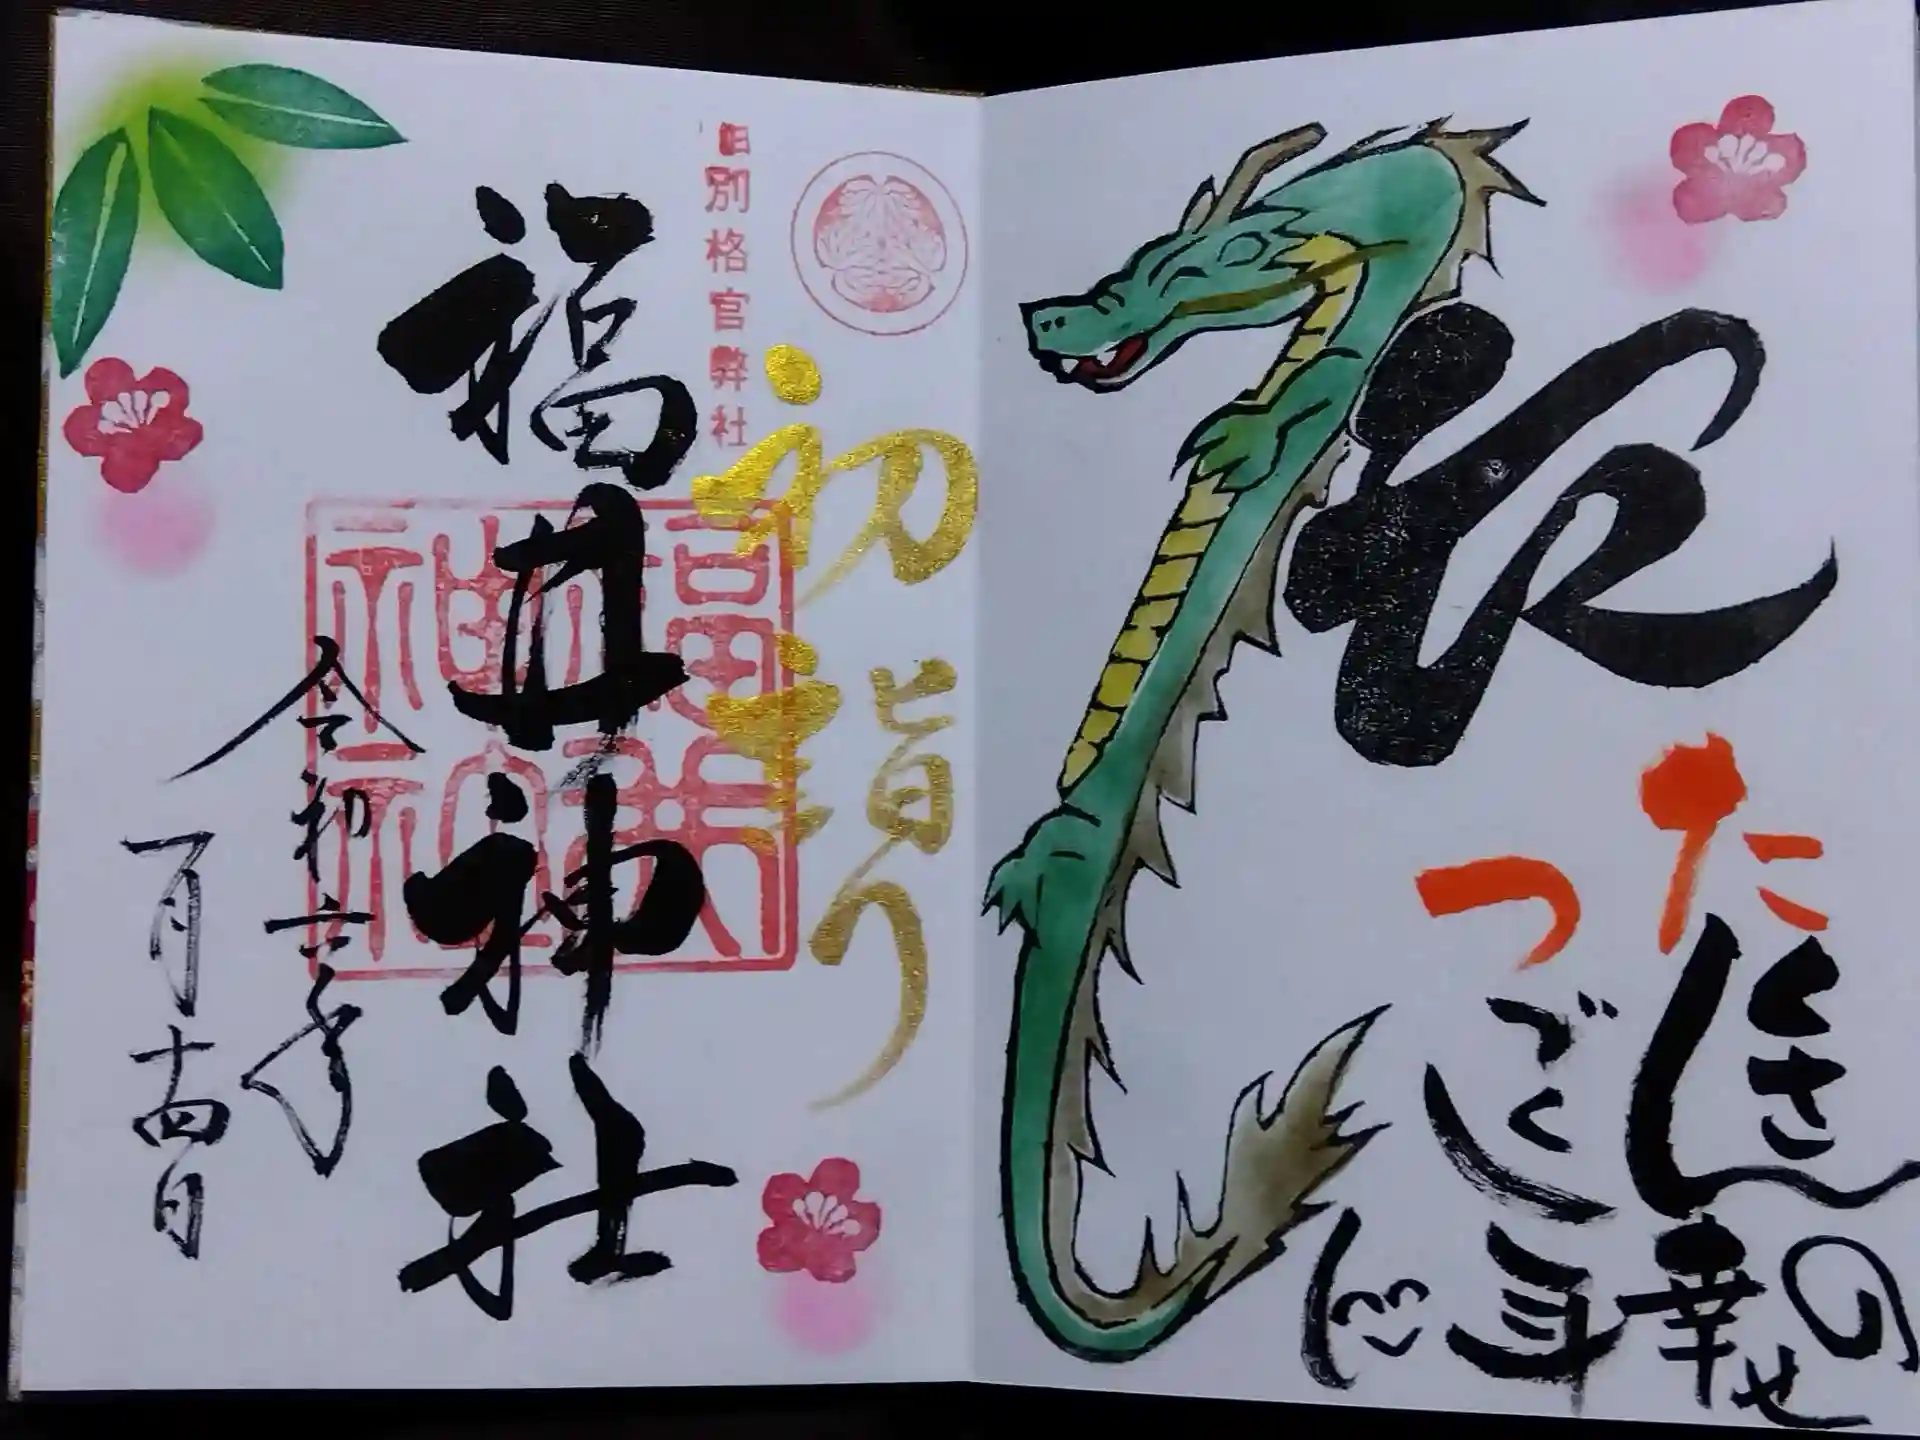 辰
たくさんの幸せ
つづく年に
旧別格官幣社
初詣り
福井神社
福井神社
令和六年
一月十四日